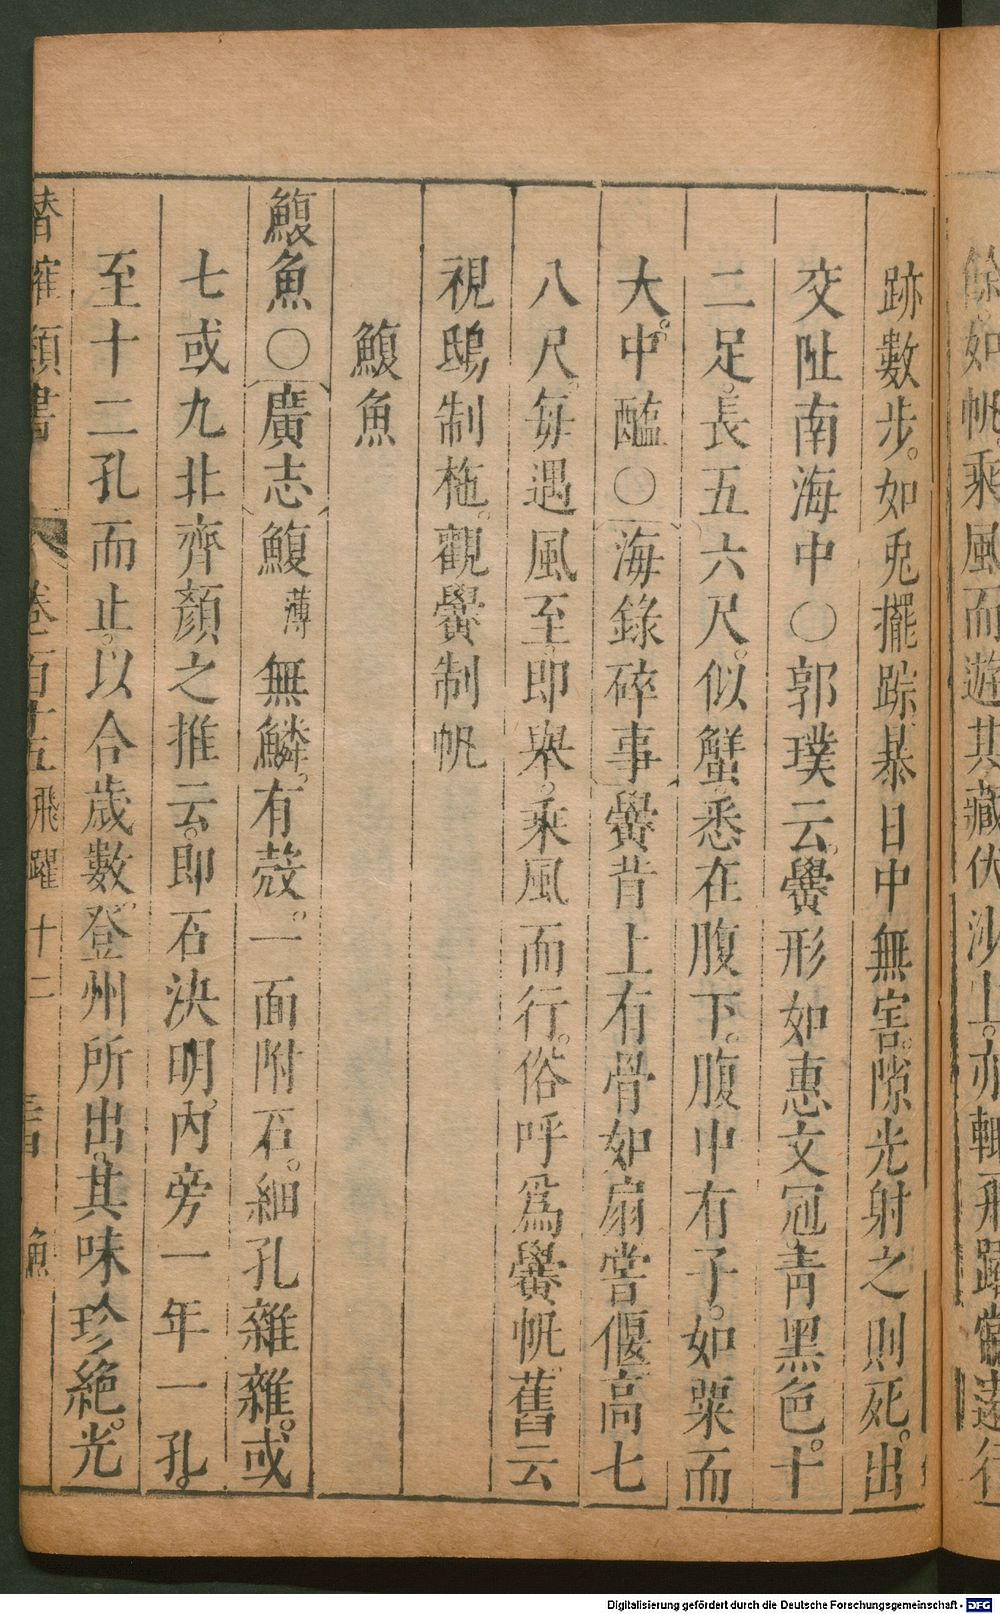 餘如帆乘風而遊其藏伏沙上亦輒飛躍
跡數步。如兎擺踪暴日中無害。隙光射之則死。出
交阯南海中○郭璞云。鱟形如惠文冠青黑色。十
二足。長五六尺。似蟹。悉在腹下。腹中有子。如粟而
大。中醢○海錄碎事鱟背上有骨如扇嘗偃高七
八尺。每遇風至。即舉。乘風而行。俗呼爲鱟帆。舊云
視鴟制柂。觀鱟制帆
鰒魚
鰒魚○廣志鰒薄無鱗。有殼。一面附石。細孔雜雜。或
七或九非齊顏之推云。即石決明。內旁一年一孔。
至十二孔而止。以合歲數。登州所出。其味珍絕。光
潛確類書 卷一百十五飛躍 十二 魚
Digitalisierung gefördert durch die Deutsche Forschungsgemeinschaft - DFG